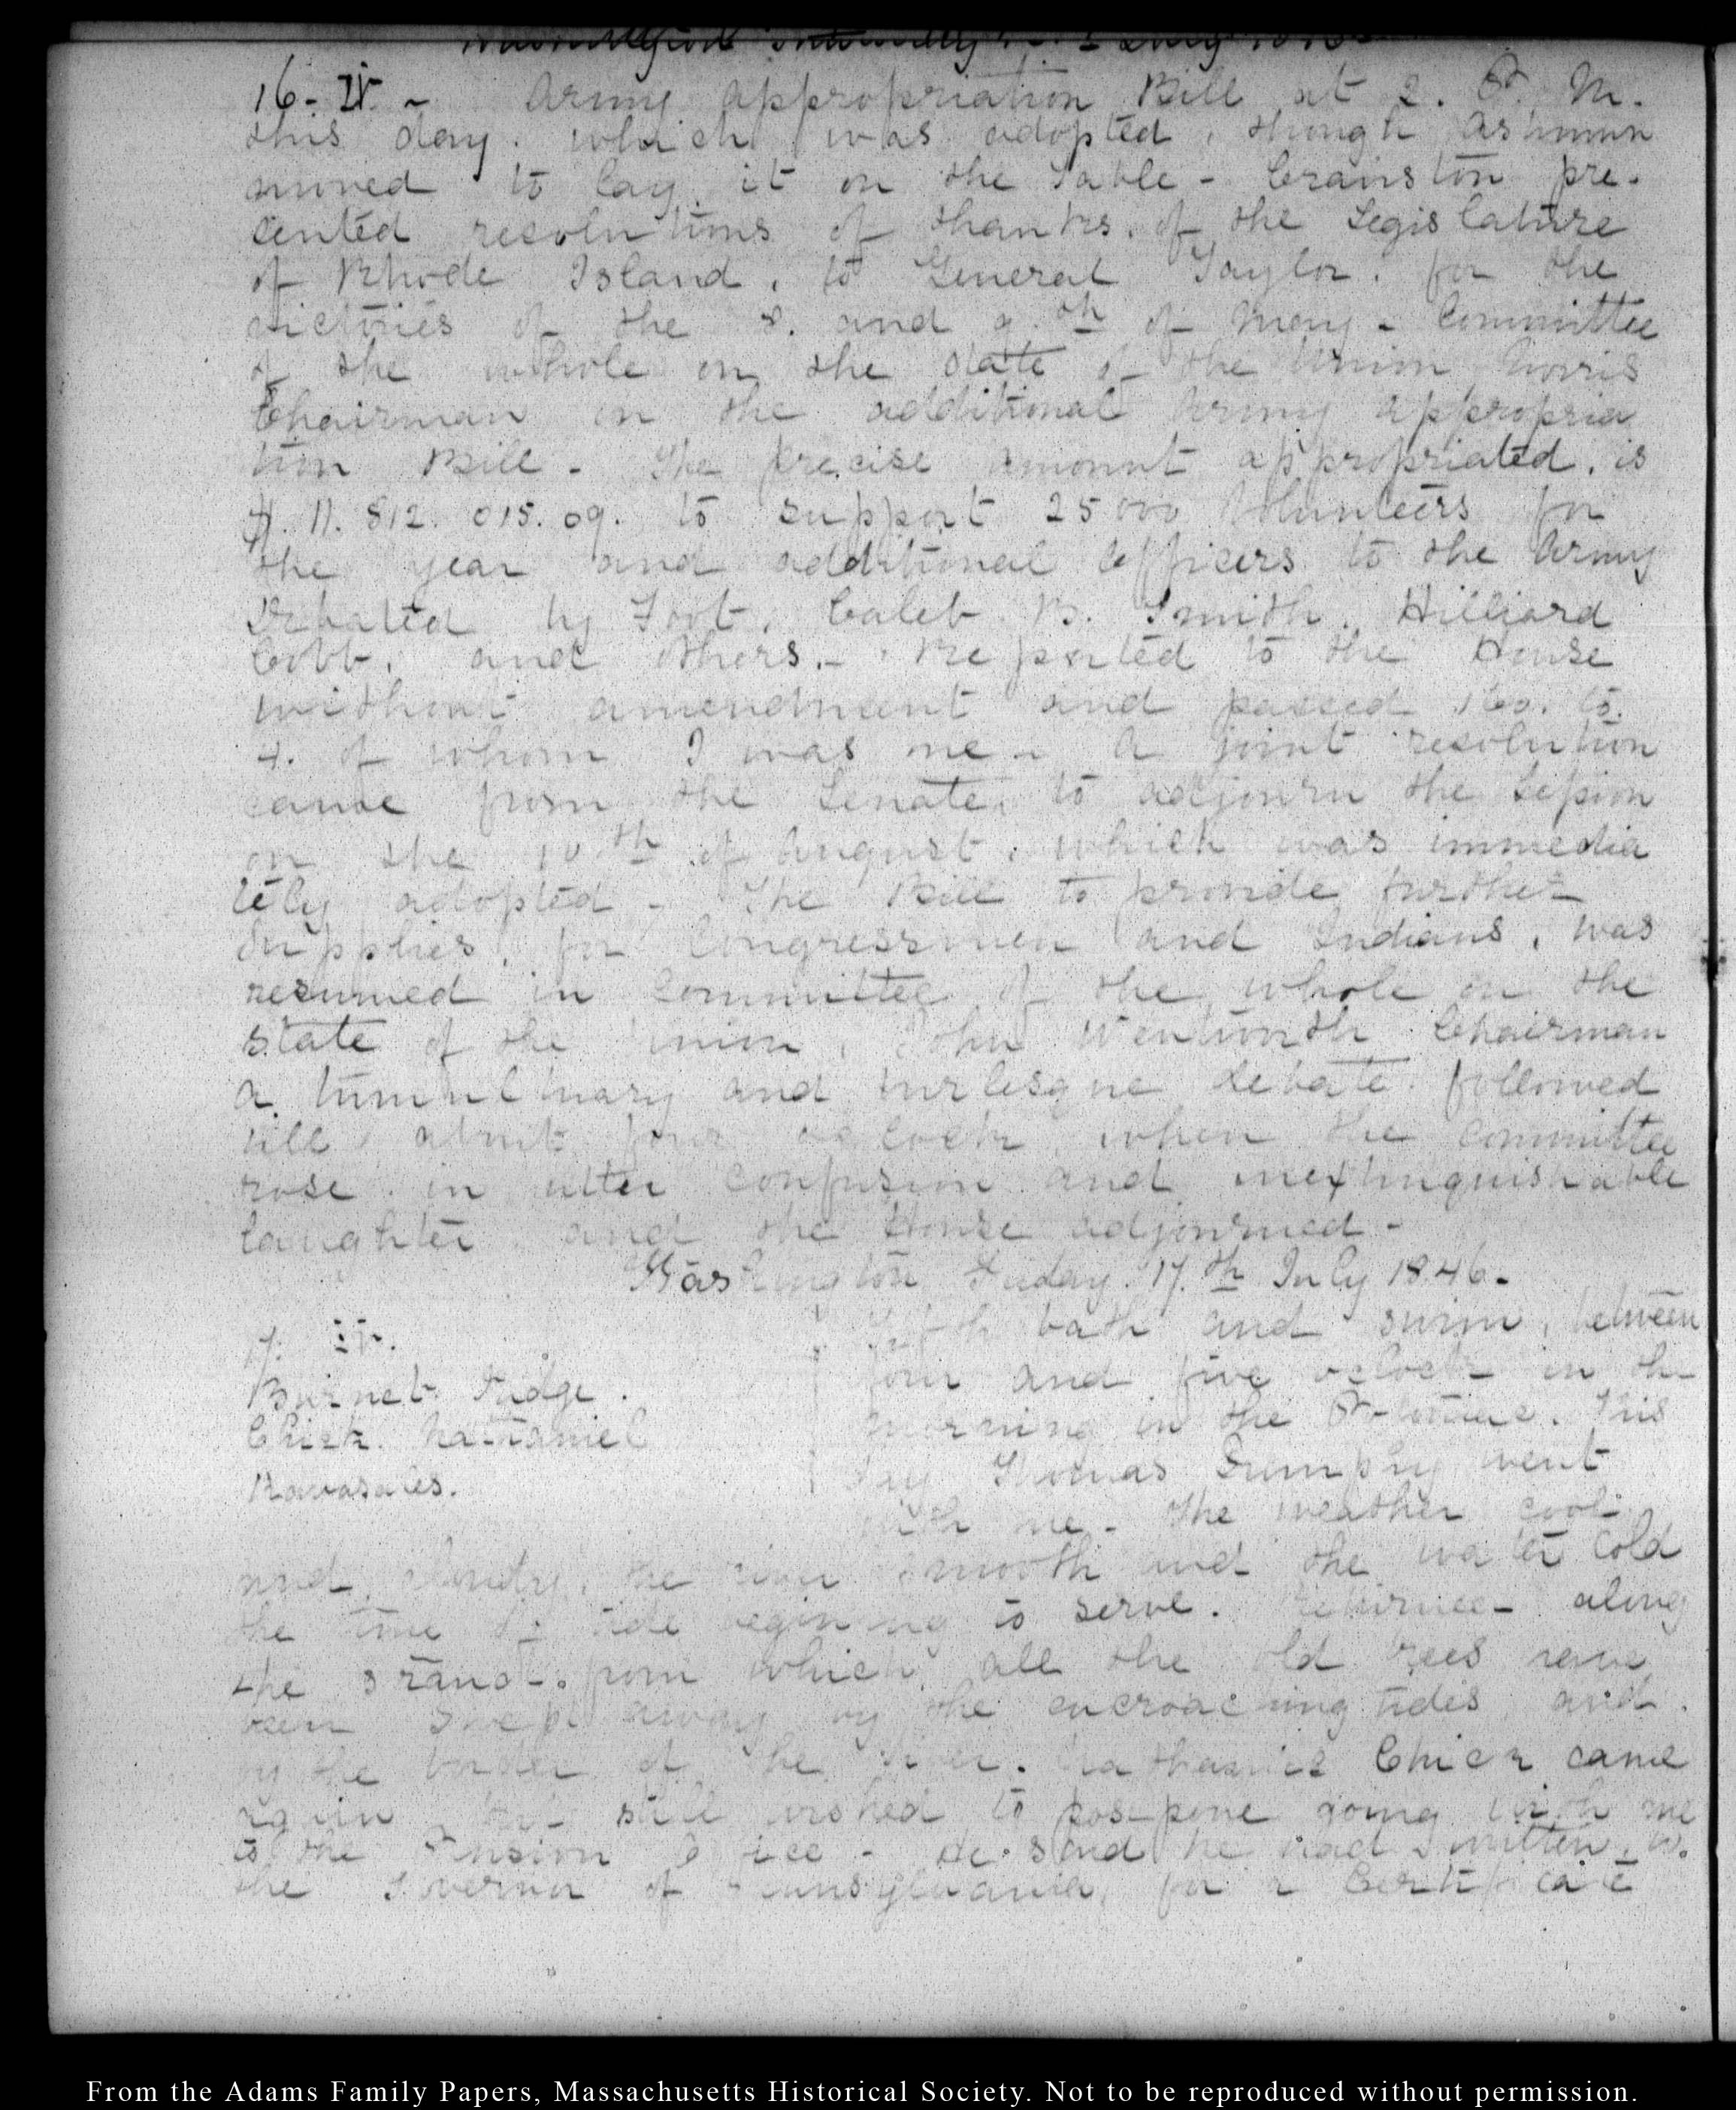 16. IV. ~ Army appropriation Bill at 2. P. M.
this day. which was adopted, though Ashmun
moved to lay it on the table - Cranston pre-
sented resolutions of thanks, of the Legislature
of Rhode Island, to General Taylor, for the
victories of the 8. and 9.th of May - Committee
of the whole on the state of the Union Norris
Chairman on the additional Army appropria
tion Bill - The precise amount appropriated, is
11. 812. 015. 09. to support 25000 Volunteers for
the year and additional officers to the Army
Debated by Foot, Caleb B. Smith, Hilliard
Cobb, and others. - Reported to the House
without amendment and passed to
4. of whom I was one - A joint resolution
came from the Senate, to adjourn the Session
on the 10th of August, which was immedia
tely adopted - The Bill to provide further
supplies, for Congressmen and Indians, was
resumed in Committee of the whole on the
state of the Union, John Wentworth Chairman
a tumultuary and burlesque debate followed
till about four o clock when the committee
rose in utter confusion and inextinguishable
laughter and the House adjourned -
Washington Friday. 17.th July 1846.
17. IV.
Burnet. Judge.
Chick. Nathaniel
bath and swim, between
four and five o clock in the
morning in the Potomac. This
day Thomas went
with me - The weather cool
and cloudy, the river smooth and the water cold
the time of tide beginning to serve. Returned along
the strand from which all the old trees have
been swept away by the encroaching tides and
by the border of the river. Nathaniel Chick came
again but still wished to postpone going with me
to the Pension Office - He said he had written to
the Governor of Pennsylvania, for a Certificate
From the Adams Family Papers, Massachusetts Historical Society. Not to be reproduced without permission.